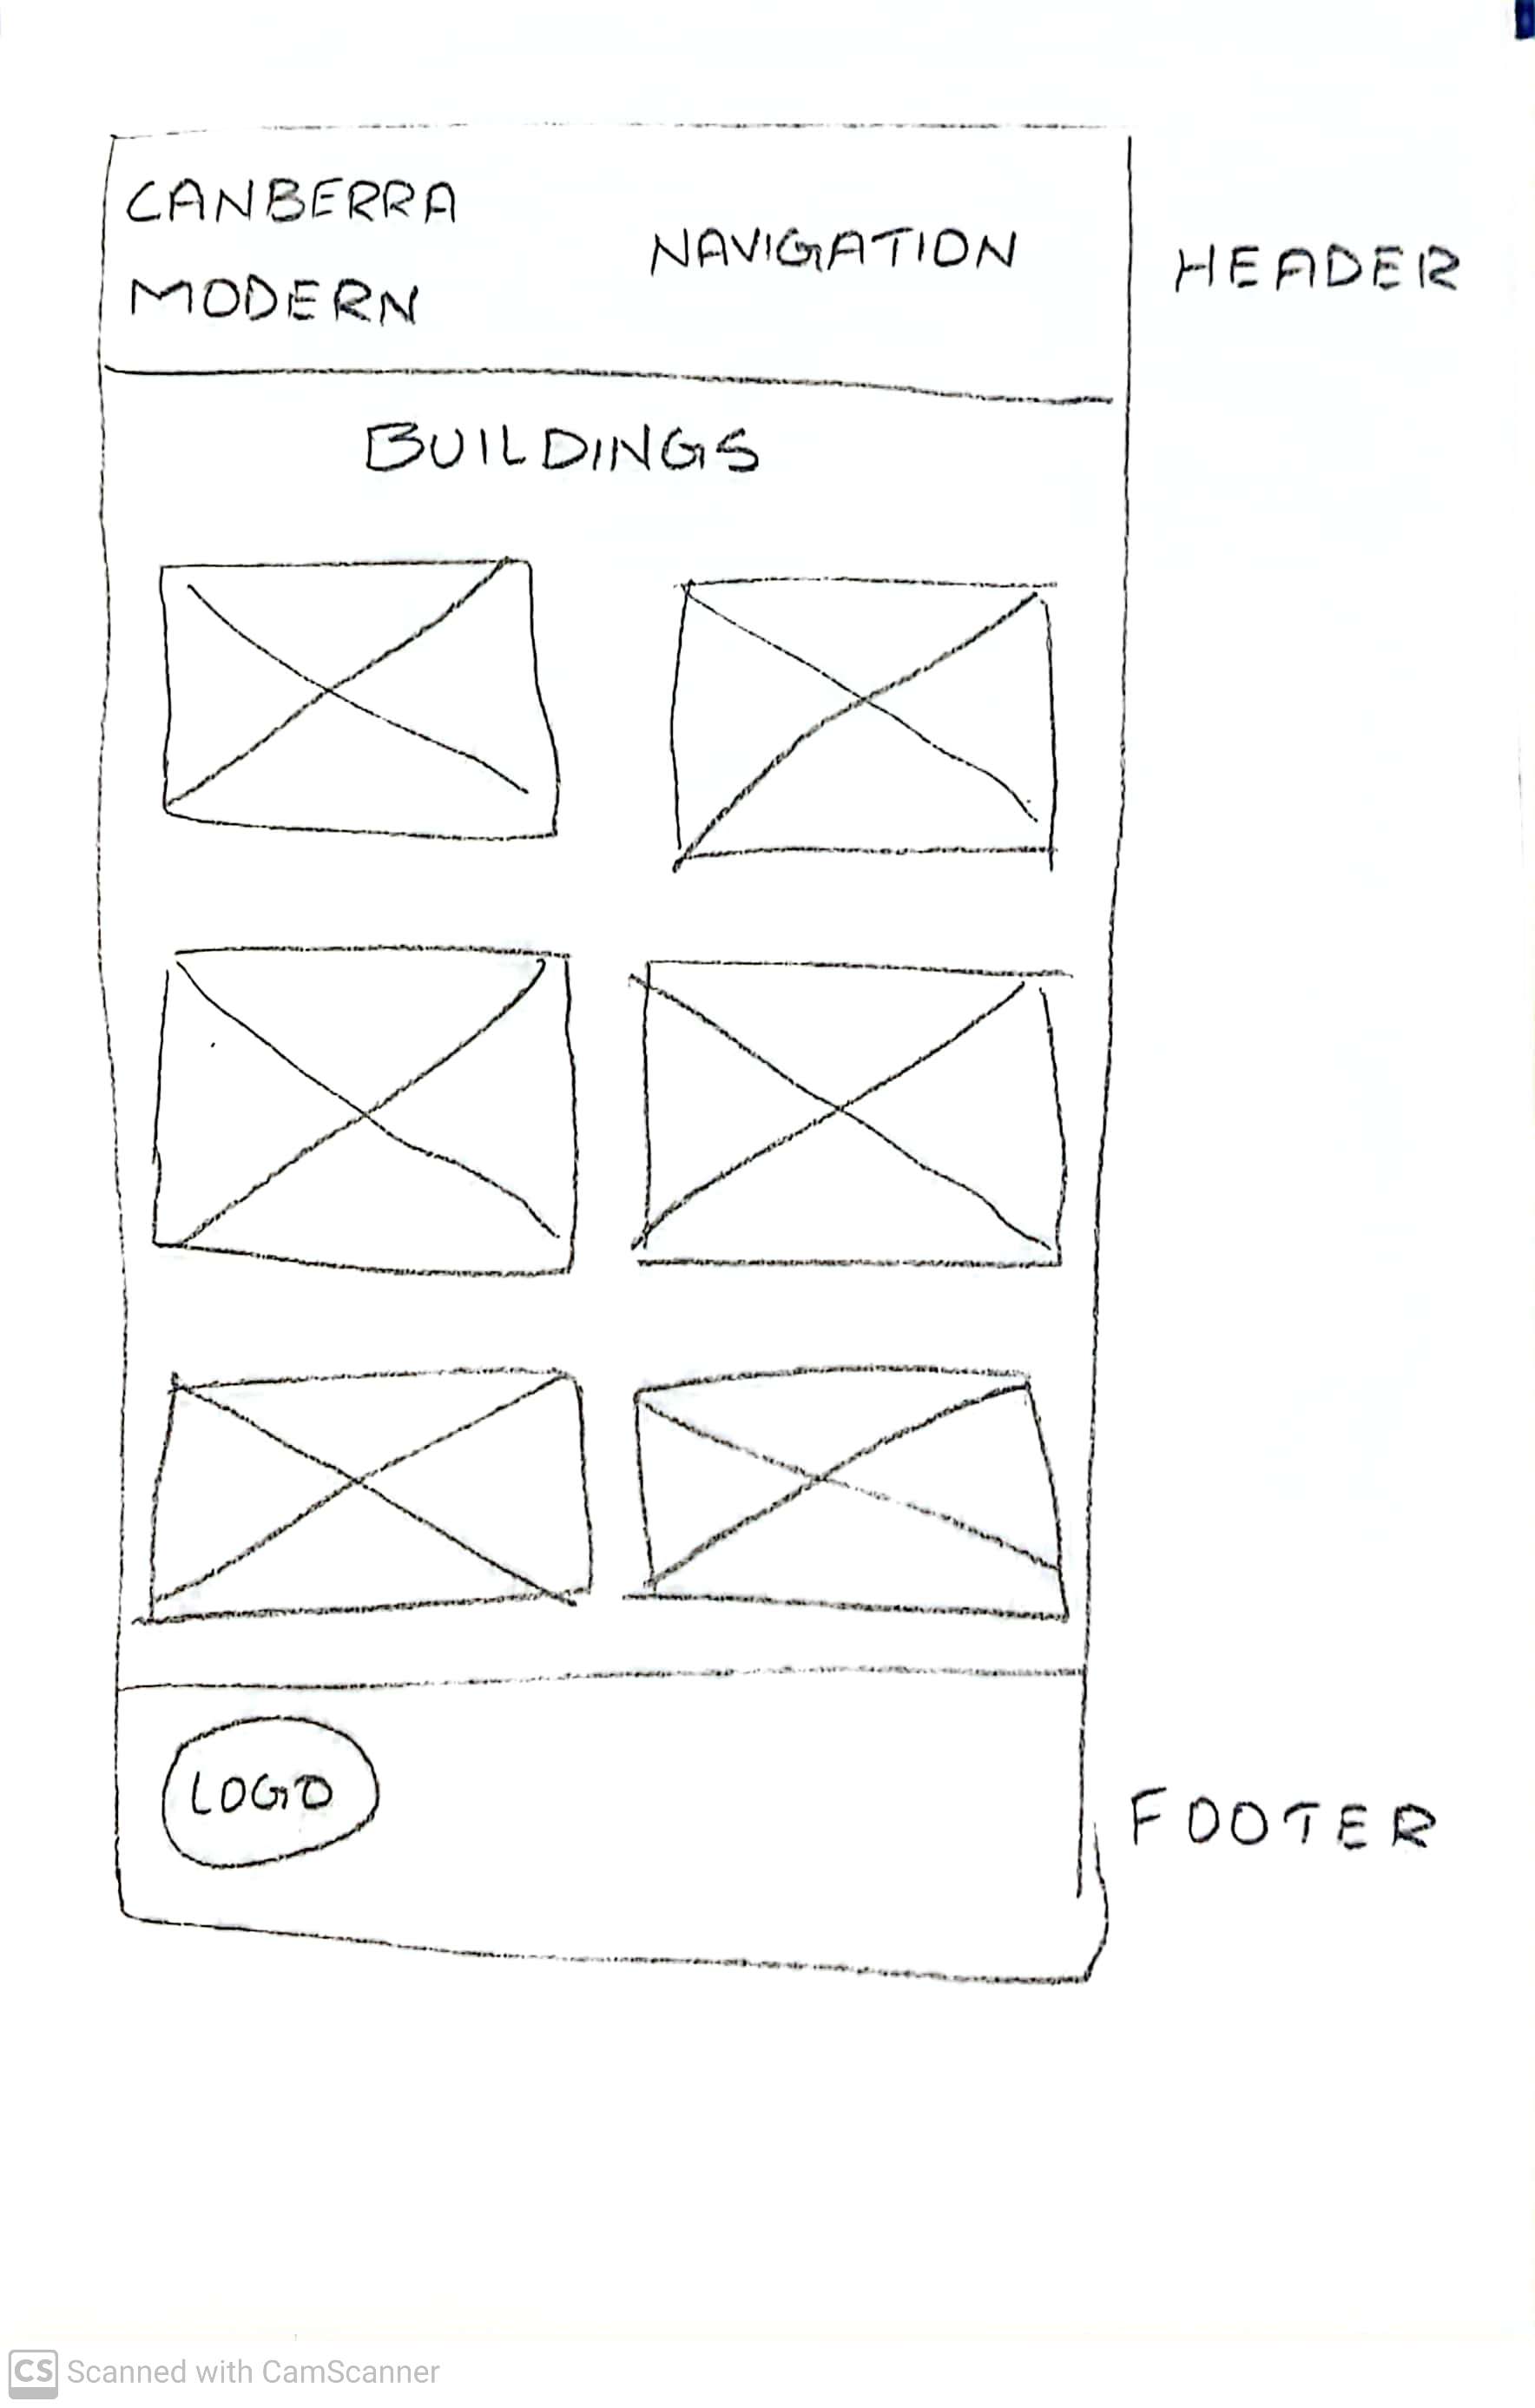 CANBERRA
MODERN
NAVIGATION
HEADER
BUILDINGS
LOGO
FOOTER
CS Scanned with CamScanner